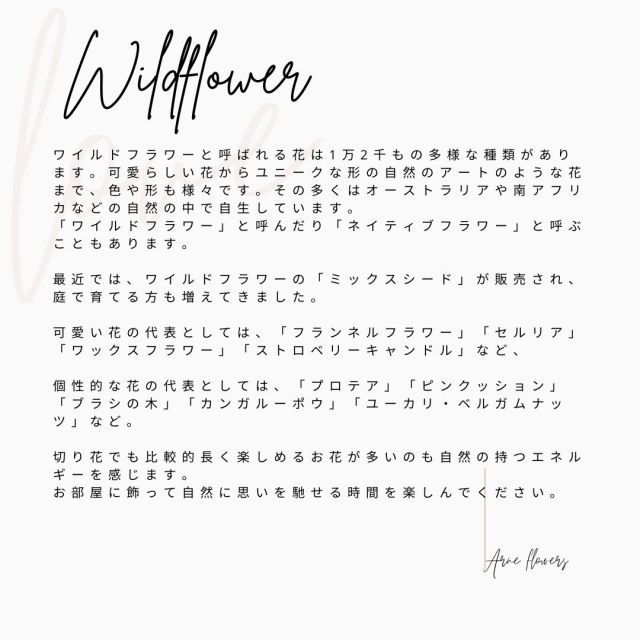 Wildflower
ワイルドフラワーと呼ばれる花は1万2千もの多様な種類があり
ます。可愛らしい花からユニークな形の自然のアートのような花
まで、色や形も様々です。その多くはオーストラリアや南アフリ
カなどの自然の中で自生しています。
「ワイルドフラワー」と呼んだり「ネイティブフラワー」と呼ぶ
こともあります。
最近では、ワイルドフラワーの「ミックスシード」が販売され、
庭で育てる方も増えてきました。
可愛い花の代表としては、「フランネルフラワー」「セルリア」
「ワックスフラワー」「ストロベリーキャンドル」など、
個性的な花の代表としては、「プロテア」「ピンクッション」
「ブラシの木」「カンガルーポウ」「ユーカリ・ベルガムナッ
ツ」など。
切り花でも比較的長く楽しめるお花が多いのも自然の持つエネル
ギーを感じます。
お部屋に飾って自然に思いを馳せる時間を楽しんでください。
Arne flowers